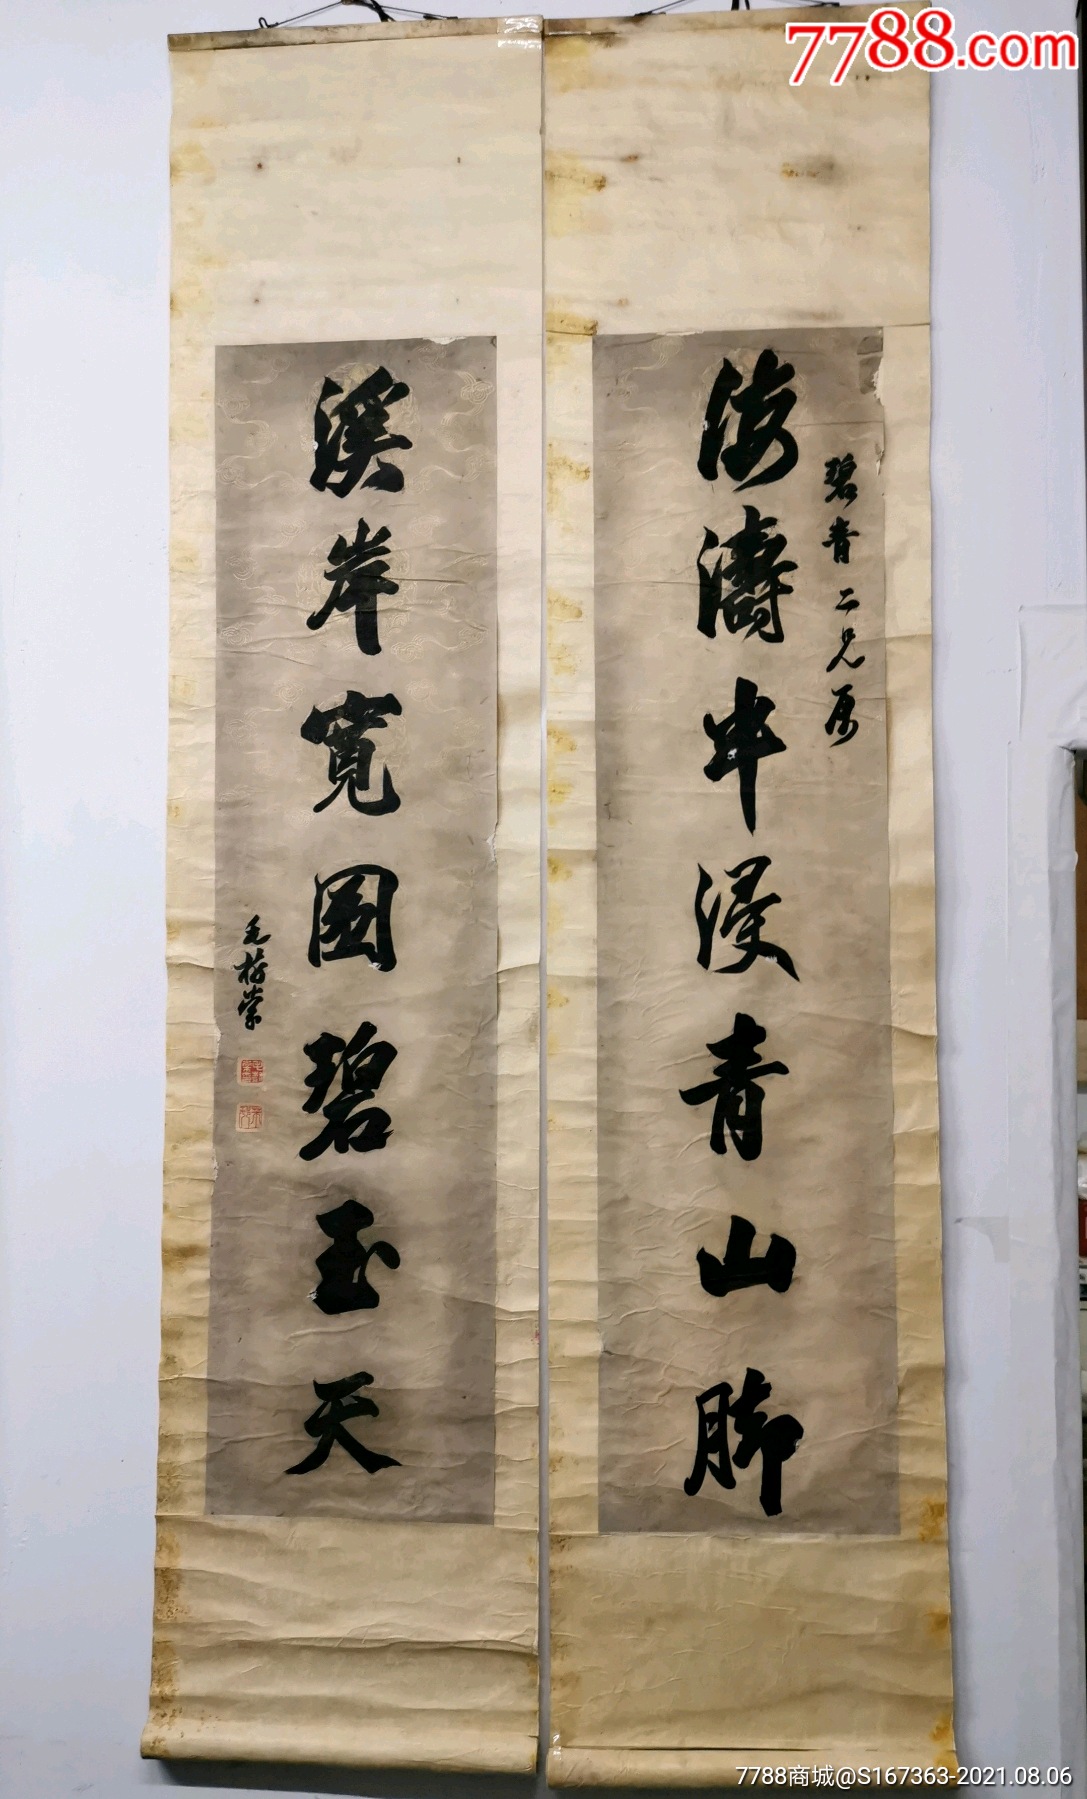 7788.com
碧青二兄属
海濤半浸青山脚
溪岸寬圍碧玉天
毛
7788商城@S167363-2021.08.06